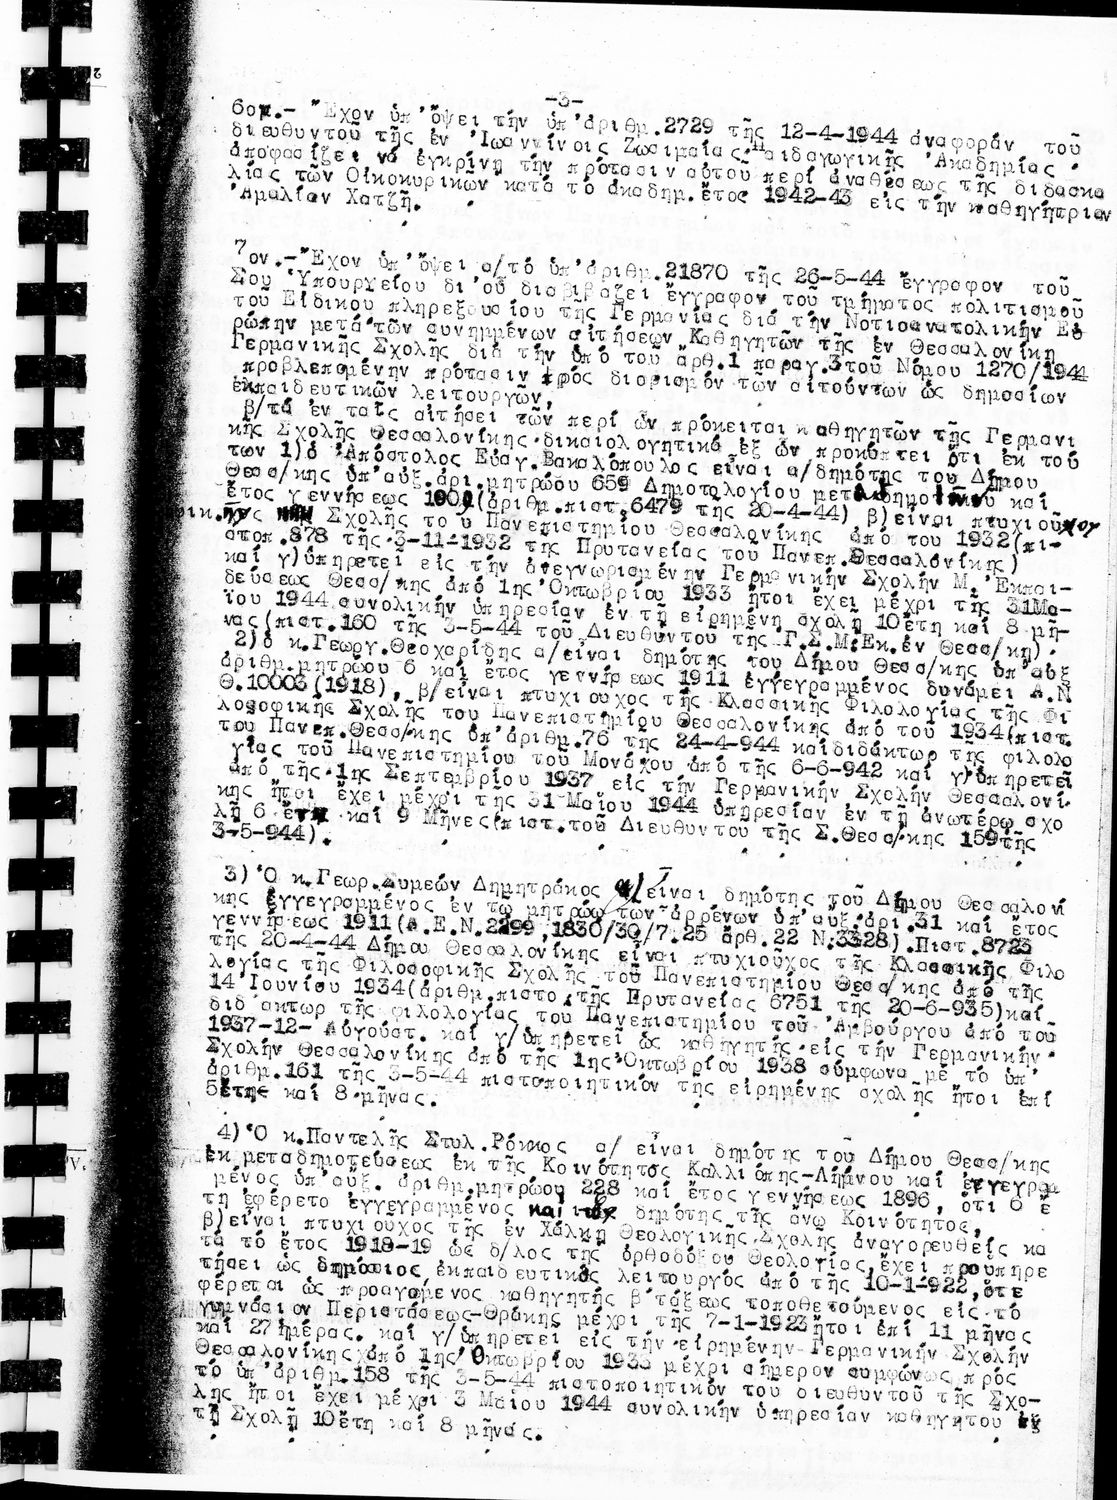 -3-
6ον.- Ἔχον ὑπ'ὄψει τήν ὑπ'ἀριθμ.2729 τῆς 12-4-1944 ἀναφοράν τοῦ
διευθυντοῦ τῆς ἐν Ἰωαννίνοις Ζωσιμαίας Παιδαγωγικῆς Ἀκαδημίας
ἀποφασίζει νά ἐγκρίνῃ τήν πρότασιν αὐτοῦ περί ἀναθέσεως τῆς διδασκα
λίας τῶν Οἰκοκυρικῶν κατά τό ἀκαδημ.ἔτος 1942-43 εἰς τήν καθηγήτριαν
Ἀμαλίαν Χατζῆ.
7ον.-Ἔχον ὑπ'ὄψει α/τό ὑπ'ἀριθμ.21870 τῆς 26-5-44 ἔγγραφον τοῦ
Σου Ὑπουργείου δι'οὗ διαβιβάζει ἔγγραφον τοῦ τμήματος πολιτισμοῦ
τοῦ Εἰδικοῦ πληρεξουσίου τῆς Γερμανίας διά τήν Νοτιοανατολικήν Εὐ
ρώπην μετά τῶν συνημμένων αἰτήσεων Καθηγητῶν τῆς ἐν Θεσσαλονίκη
Γερμανικῆς Σχολῆς διά τήν ὑπό τοῦ ἄρθ.1 παραγ.3τοῦ Νόμου 1270/1944
προβλεπομένην πρότασιν πρός διορισμόν τῶν αἰτούντων ὡς δημοσίων
ἐκπαιδευτικῶν λειτουργῶν,
β/τά ἐν ταῖς αἰτήσει τῶν περί ὧν πρόκειται καθηγητῶν τῆς Γερμανι
κῆς Σχολῆς Θεσσαλονίκης δικαιολογητικά ἐξ ὧν προκύπτει ὅτι ἐκ τοῦ
των 1)ὁ Ἀπόστολος Εὐαγ.Βακαλόπουλος εἶναι α/δημότης τοῦ Δήμου
Θεσσ/κης ὑπ'αὔξ.ἀρι.μητρώου 659 Δημοτολογίου καί
ἔτος γεννήσεως (ἀριθμ.πιστ.6479 τῆς 20-4-44) β)εἶναι πτυχιοῦχος
Σχολῆς τοῦ Πανεπιστημίου Θεσσαλονίκης ἀπό του 1932(πι-
στοπ.878 τῆς 3-11-1932 τῆς Πρυτανείας τοῦ Πανεπ.Θεσσαλονίκης)
καί γ)ὑπηρετεῖ εἰς τήν ἀνεγνωρισμένην Γερμανικήν Σχολήν Μ. Ἐκπαι-
δεύσεως Θεσσ/κης ἀπό 1ης Ὀκτωβρίου 1933 ἤτοι ἔχει μέχρι τῆς 31Μα-
ΐου 1944 συνολικήν ὑπηρεσίαν ἐν τῇ εἰρημένῃ σχολῇ 10 ἔτη καί 8 μῆ-
νας(πιστ.160 τῆς 3-5-44 τοῦ Διευθυντοῦ τῆς Γ.Σ.Μ.Εκ.ἐν Θεσσ/κη).
2)ὁ κ.Γεωργ.Θεοχαρίδης α/εἶναι δημότης τοῦ Δήμου Θεσσ/κης ὑπ'αὔξ
ἀριθμ.μητρώου 6 καί ἔτος γεννήσεως 1911 ἐγγεγραμμένος δυνάμει Α.Ν
Θ.10003(1918), β/εἶναι πτυχιοῦχος τῆς Κλασσικῆς Φιλολογίας τῆς Φι
λοσοφικῆς Σχολῆς τοῦ Πανεπιστημίου Θεσσαλονίκης ἀπό του 1934(πιστ.
του Πανεπ.Θεσσ/κης ὑπ'ἀριθμ.76 τῆς 24-4-944 καί διδάκτωρ τῆς φιλολο
γίας τοῦ Πανεπιστημίου τοῦ Μονάχου ἀπό τῆς 6-6-942 καί γ)ὑπηρετεῖ
ἀπό τῆς 1ης Σεπτεμβρίου 1937 εἰς τήν Γερμανικήν Σχολήν Θεσσαλονί
κης ἤτοι ἔχει μέχρι τῆς 31 Μαΐου 1944 ὑπηρεσίαν ἐν τῇ ἀνωτέρω σχο
λῇ 6 ἔτη καί 9 Μῆνες(πιστ.τοῦ Διευθυντοῦ τῆς Σ.Θεσσ/κης 159τῆς
3-5-944).
3)Ὁ κ.Γεωρ.Συμεών Δημητράκος α)εἶναι δημότης τοῦ Δήμου Θεσσαλονί
κης ἐγγεγραμμένος ἐν τῷ μητρώω τῶν ἀρρένων ὑπ'αὔξ.ἀρι.31 καί ἔτος
γεννήσεως 1911(Α.Ε.Ν.2299,1830/30/7.25 ἄρθ.22 Ν.3328).Πιστ.8723
τῆς 20-4-44 Δήμου Θεσσαλονίκης εἶναι πτυχιοῦχος τῆς Κλασσικῆς Φιλο
λογίας τῆς Φιλοσοφικῆς Σχολῆς τοῦ Πανεπιστημίου Θεσσ/κης ἀπό τῆς
14 Ἰουνίου 1934(ἀριθμ.πιστο.τῆς Πρυτανείας 6751 τῆς 20-6-935)καί
διδάκτωρ τῆς φιλολογίας τοῦ Πανεπιστημίου τοῦ Ἀμβούργου ἀπό τοῦ
1937-12- Αὐγούστ. καί γ/ὑπηρετεῖ ὡς καθηγητής εἰς τήν Γερμανικήν
Σχολήν Θεσσαλονίκης ἀπό τῆς 1ης Ὀκτωβρίου 1938 σύμφωνα μέ τό ὑπ'
ἀριθμ.161 τῆς 3-5-44 πιστοποιητικόν τῆς εἰρημένης σχολῆς ἤτοι ἐπί
5ἔτη καί 8 μῆνας.
4)Ὁ κ.Παντελῆς Στυλ.Ρόκκος α/ εἶναι δημότης τοῦ Δήμου Θεσσ/κης
ἐκ μεταδημοτεύσεως ἐκ τῆς Κοινότητος Καλλιόπης-Λήμνου καί ἐγγεγραμ
μένος ὑπ'αὔξ. ἀριθμ.μητρώου 228 καί ἔτος γεννήσεως 1896, ὅτι ὁ ἔ
τη ἐφέρετο ἐγγεγραμμένος καί δημότης τῆς ἄνω Κοινότητος,
β)εἶναι πτυχιοῦχος τῆς ἐν Χάλκῃ Θεολογικῆς Σχολῆς ἀναγορευθείς κα
τά τό ἔτος 1918-19 ὡς δ/λος τῆς ὀρθοδόξου Θεολογίας,ἔχει προυπηρε
τήσει ὡς δημόσιος ἐκπαιδευτικός λειτουργός ἀπό τῆς 10-1-922,ὅτε
φέρεται ὡς προαγόμενος καθηγητής β'τάξεως τοποθετούμενος εἰς τό
γυμνάσιον Περιστάσεως-Θράκης μέχρι τῆς 7-1-1923ἤτοι ἐπί 11 μῆνας
καί 27ἡμέρας. καί γ/ὑπηρετεῖ εἰς τήν εἰρημένην Γερμανικήν Σχολήν
Θεσσαλονίκης ἀπό 1ης Ὀκτωβρίου 1933 μέχρι σήμερον συμφώνως πρός
τό ὑπ'ἀριθμ.158 τῆς 3-5-44 πιστοποιητικόν τοῦ διευθυντοῦ τῆς Σχο-
λῆς ἤτοι ἔχει μέχρι 3 Μαΐου 1944 συνολικήν ὑπηρεσίαν καθηγητοῦ ἐν
τῇ Σχολῇ 10 ἔτη καί 8 μῆνας.